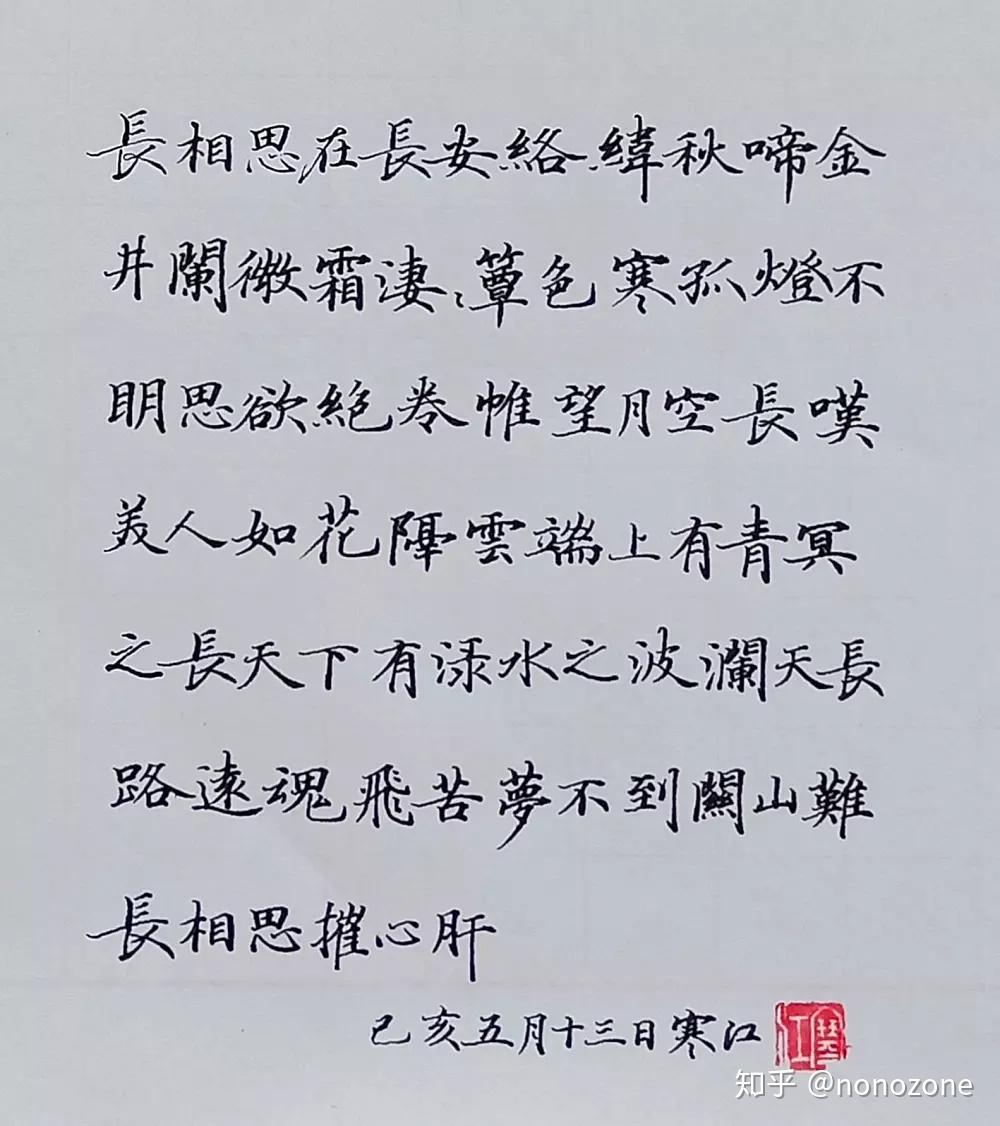 長相思在長安絡緯秋啼金
井闌微霜淒淒簟色寒孤燈不
明思欲絕卷帷望月空長嘆
美人如花隔雲端上有青冥
之長天下有淥水之波瀾天長
路遠魂飛苦夢不到關山難
長相思摧心肝
己亥五月十三日寒江
寒江
知乎 @nonozone